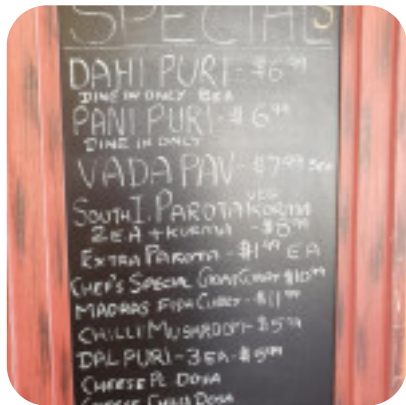 SPECIALS
DAHI PURI - $6⁹⁹
DINE IN ONLY 8EA
PANI PURI - $6⁹⁹
DINE IN ONLY
VADA PAV - $7⁹⁹
SOUTH I. PAROTA VEG KORMA
2EA + KURMA
EXTRA PAROTA - $1⁹⁹ EA
CHEF'S SPECIAL GOAT CURRY $10⁹⁹
MADRAS FISH CURRY - $11⁹⁹
CHILLI MUSHROOM - $5⁹⁹
DAL PURI - 3EA - $5⁹⁹
CHEESE PL DOSA
CHEESE CHILLI DOSA